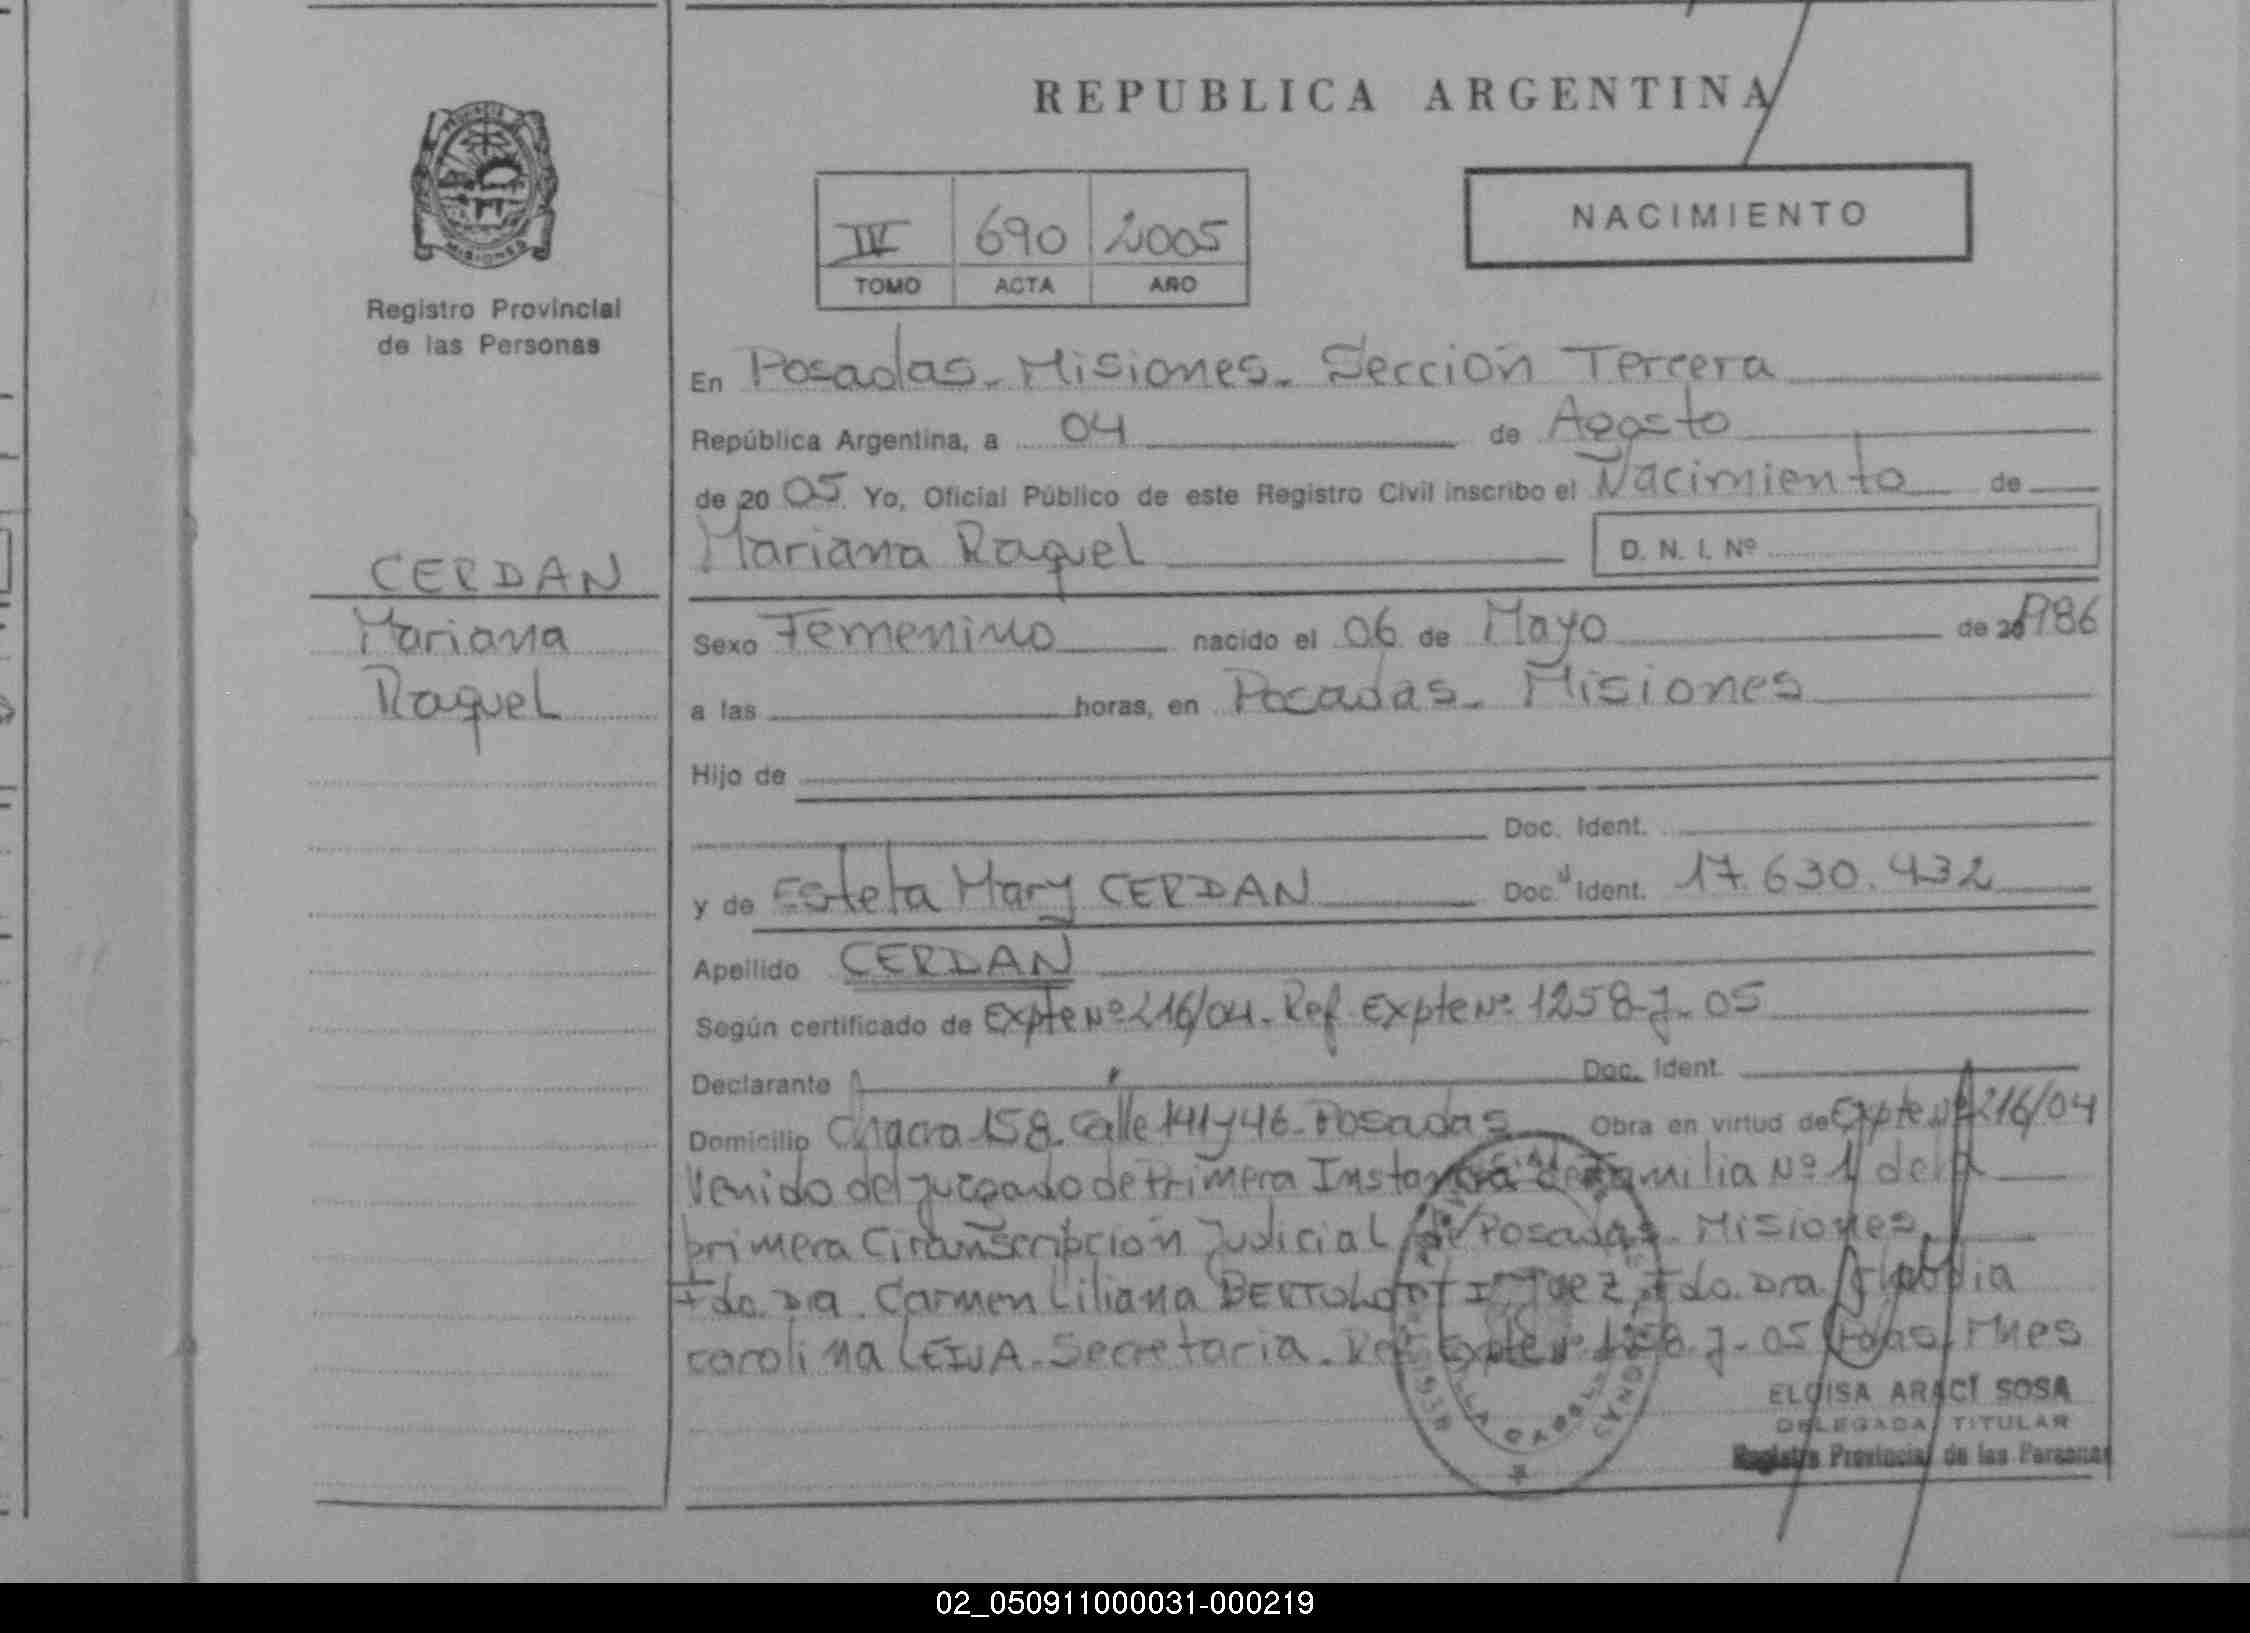 REPUBLICA ARGENTINA
NACIMIENTO
IV 690 2005
TOMO ACTA AÑO
PROVINCIA DE
MISIONES
Registro Provincial
de las Personas
CERDAN
Mariana
Raquel
En Posadas - Misiones - Sección Tercera
República Argentina, a 04 de Agosto
de 20 05 Yo, Oficial Público de este Registro Civil inscribo el Nacimiento de
Mariana Raquel D. N. I. Nº
Sexo Femenino nacido el 06 de Mayo de 20 1986
a las horas, en Posadas - Misiones
Hijo de
Doc. Ident.
y de Estela Mary CERDAN Doc. Ident. 17.630.432
Apellido CERDAN
Según certificado de Expte Nº 216/04 - Ref. Expte Nº 1258-J-05
Declarante Doc. Ident.
Domicilio Chacra 158 - Calle 141 y 46 - Posadas Obra en virtud de Expte Nº 216/04
Venido del Juzgado de Primera Instancia de Familia Nº 1 de la
primera Circunscripción Judicial de Posadas - Misiones
Fdo. Dra. Carmen Liliana Juez, Fdo. Dra Claudia
Carolina LEIVA - Secretaria - Ref Expte Nº 1258-J-05 Pdas. Mnes
ELOISA ARACI SOSA
DELEGADA TITULAR
Registro Provincial de las Personas
02_050911000031-000219